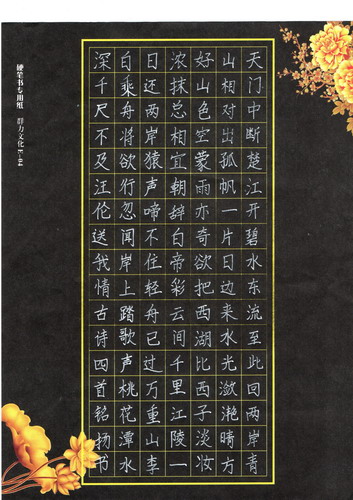 天门中断楚江开碧水东流至此回两岸青
山相对出孤帆一片日边来水光潋滟晴方
好山色空蒙雨亦奇欲把西湖比西子淡妆
浓抹总相宜朝辞白帝彩云间千里江陵一
日还两岸猿声啼不住轻舟已过万重山李
白乘舟将欲行忽闻岸上踏歌声桃花潭水
深千尺不及汪伦送我情古诗四首铭扬书
硬笔书专用纸 群力文化 E-04